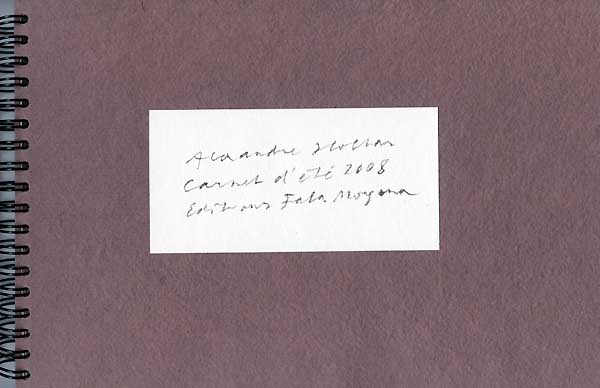 Alexandre Hollan
Carnet d'été 2008
Editions Fata Morgana